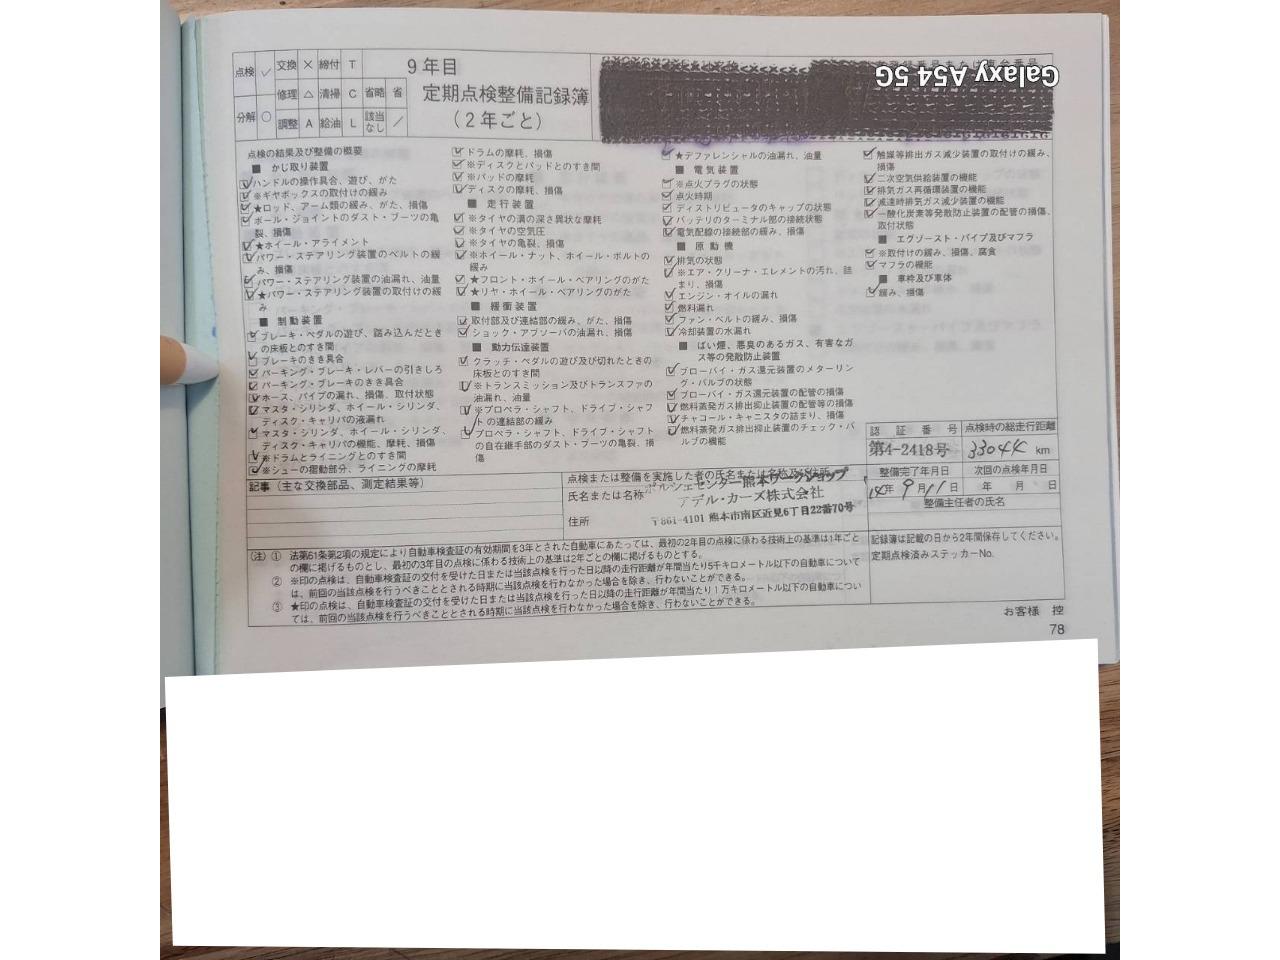 点検 ✓ 交換 × 締付 T
修理 △ 清掃 C 省略 省
分解 ○ 調整 A 給油 L 該当なし ／
9年目
定期点検整備記録簿
(2年ごと)
Galaxy A54 5G
点検の結果及び整備の概要
■ かじ取り装置
ハンドルの操作具合、遊び、がた
※ギヤボックスの取付けの緩み
★ロッド、アーム類の緩み、がた、損傷
ボール・ジョイントのダスト・ブーツの亀
裂、損傷
★ホイール・アライメント
パワー・ステアリング装置のベルトの緩
み、損傷
パワー・ステアリング装置の油漏れ、油量
★パワー・ステアリング装置の取付けの緩
み
■ 制動装置
ブレーキ・ペダルの遊び、踏み込んだとき
の床板とのすき間
ブレーキのきき具合
パーキング・ブレーキ・レバーの引きしろ
パーキング・ブレーキのきき具合
ホース、パイプの漏れ、損傷、取付状態
マスタ・シリンダ、ホイール・シリンダ、
ディスク・キャリパの液漏れ
マスタ・シリンダ、ホイール・シリンダ、
ディスク・キャリパの機能、摩耗、損傷
※ドラムとライニングとのすき間
※シューの摺動部分、ライニングの摩耗
ドラムの摩耗、損傷
※ディスクとパッドとのすき間
※パッドの摩耗
ディスクの摩耗、損傷
■ 走行装置
※タイヤの溝の深さ異状な摩耗
※タイヤの空気圧
※タイヤの亀裂、損傷
※ホイール・ナット、ホイール・ボルトの
緩み
★フロント・ホイール・ベアリングのがた
★リヤ・ホイール・ベアリングのがた
■ 緩衝装置
取付部及び連結部の緩み、がた、損傷
ショック・アブソーバの油漏れ、損傷
■ 動力伝達装置
クラッチ・ペダルの遊び及び切れたときの
床板とのすき間
※トランスミッション及びトランスファの
油漏れ、油量
※プロペラ・シャフト、ドライブ・シャフ
トの連結部の緩み
プロペラ・シャフト、ドライブ・シャフト
の自在継手部のダスト・ブーツの亀裂、損
傷
★デファレンシャルの油漏れ、油量
■ 電気装置
※点火プラグの状態
点火時期
ディストリビュータのキャップの状態
バッテリのターミナル部の接続状態
電気配線の接続部の緩み、損傷
■ 原動機
排気の状態
※エア・クリーナ・エレメントの汚れ、詰
まり、損傷
エンジン・オイルの漏れ
燃料漏れ
ファン・ベルトの緩み、損傷
冷却装置の水漏れ
■ ばい煙、悪臭のあるガス、有害なガ
ス等の発散防止装置
ブローバイ・ガス還元装置のメターリン
グ・バルブの状態
ブローバイ・ガス還元装置の配管の損傷
燃料蒸発ガス排出抑止装置の配管等の損傷
チャコール・キャニスタの詰まり、損傷
燃料蒸発ガス排出抑止装置のチェック・バ
ルブの機能
触媒等排出ガス減少装置の取付けの緩み、
損傷
二次空気供給装置の機能
排気ガス再循環装置の機能
減速時排気ガス減少装置の機能
一酸化炭素等発散防止装置の配管の損傷、
取付状態
■ エグゾースト・パイプ及びマフラ
※取付けの緩み、損傷、腐食
マフラの機能
■ 車枠及び車体
緩み、損傷
認証番号 点検時の総走行距離
第4-2418号 33044 km
整備完了年月日 次回の点検年月日
14年 9月11日 年 月 日
整備主任者の氏名
記事（主な交換部品、測定結果等）
点検または整備を実施した者の氏名または名称及び住所
氏名または名称 ポルシェセンター熊本ワークショップ
アデル・カーズ株式会社
住所 〒861-4101 熊本市南区近見6丁目22番70号
記録簿は記載の日から2年間保存してください。
定期点検済みステッカーNo.
(注) ① 法第61条第2項の規定により自動車検査証の有効期間を3年とされた自動車にあたっては、最初の2年目の点検に係わる技術上の基準は1年ごと
の欄に掲げるものとし、最初の3年目の点検に係わる技術上の基準は2年ごとの欄に掲げるものとする。
② ※印の点検は、自動車検査証の交付を受けた日または当該点検を行った日以降の走行距離が年間当たり5千キロメートル以下の自動車について
は、前回の当該点検を行うべきこととされる時期に当該点検を行わなかった場合を除き、行わないことができる。
③ ★印の点検は、自動車検査証の交付を受けた日または当該点検を行った日以降の走行距離が年間当たり1万キロメートル以下の自動車につい
ては、前回の当該点検を行うべきこととされる時期に当該点検を行わなかった場合を除き、行わないことができる。
お客様 控
78